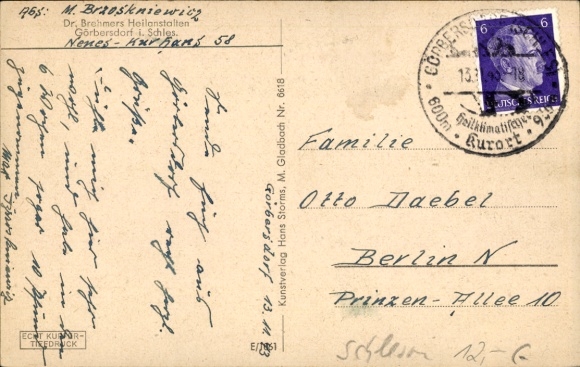 Abs: M. Brzoskniewicz
Dr. Brehmers Heilanstalten
Görbersdorf i. Schles.
Neues-Kurhaus 58
Görbersdorf 13.11.43
Sende Euch aus
Görbersdorf recht herzl.
Grüße.
mir hier sehr
wohl, und habe in den
6 Wochen zwar 10 Pfund
zugenommen
ECHT KUPFER-
TIEFDRUCK
E/1961
Kunstverlag Hans Storms, M. Gladbach Nr. 6618
6 6
DEUTSCHES REICH
GÖRBERSDORF
13. 18
600m
Heilklimatischer
Kurort
Familie
Otto Daebel
Berlin N
Prinzen-Allee 10
Schlesien 12,-